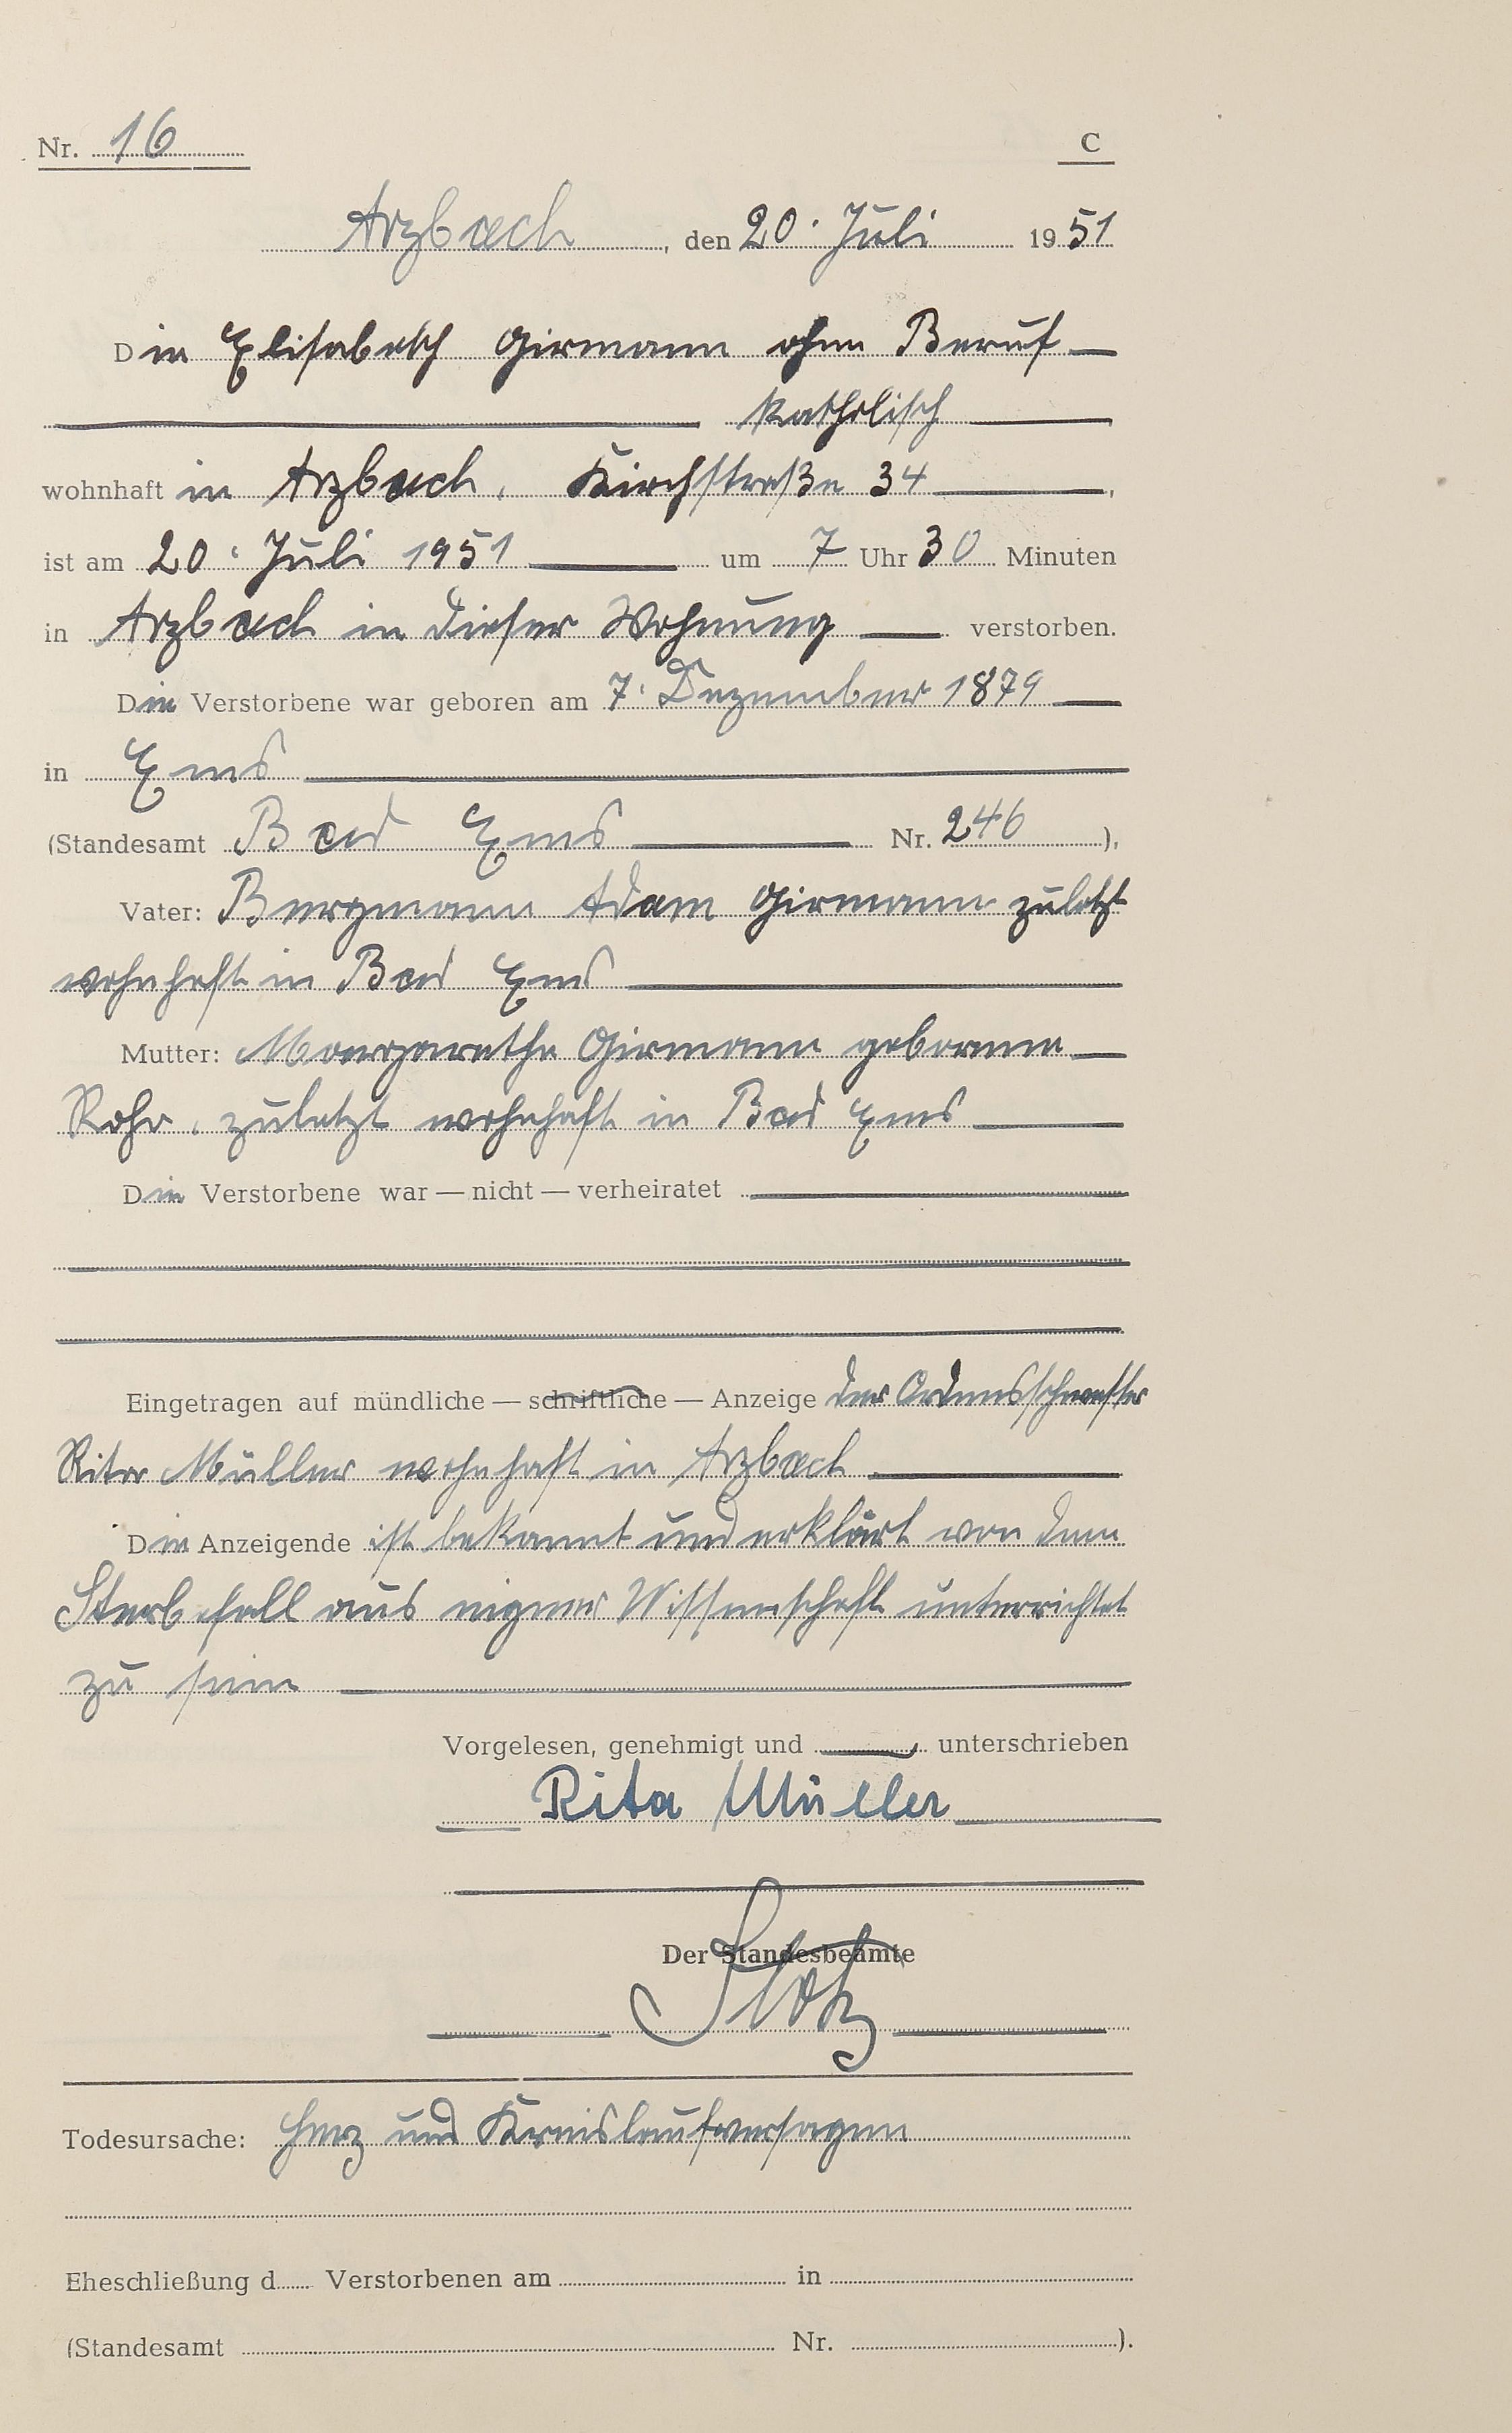 Nr. 16
C
Arzbach, den 20. Juli 1951
Die Elisabeth Girmann ohne Beruf
katholisch
wohnhaft in Arzbach, Kirchstraße 34,
ist am 20. Juli 1951 um 7 Uhr 30 Minuten
in Arzbach in dieser Wohnung verstorben.
Die Verstorbene war geboren am 7. Dezember 1879
in Ems
(Standesamt Bad Ems Nr. 246),
Vater: Bergmann Adam Girmann zuletzt
wohnhaft in Bad Ems
Mutter: Margarethe Girmann geborene
Rohr, zuletzt wohnhaft in Bad Ems
Die Verstorbene war — nicht — verheiratet
Eingetragen auf mündliche — schriftliche — Anzeige der Ordensschwester
Rita Müller wohnhaft in Arzbach
Die Anzeigende ist bekannt und erklärt von dem
Sterbefall aus eigner Wissenschaft unterrichtet
zu sein
Vorgelesen, genehmigt und unterschrieben
Rita Müller
Der Standesbeamte
Stotz
Todesursache: Herz und Kreislaufversagen
Eheschließung d Verstorbenen am in
(Standesamt Nr. ).